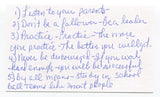 1) Listen to your parents -
2) Don't be a follower - Be a leader
3) Practice - Practice - the more
you practice - the better you will get.
4) Never be discouraged - if you work
hard enough - you will be successful
5) By all means - study in school
like most people